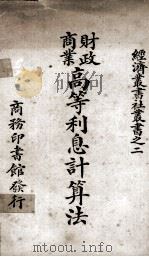 經濟叢書社叢書之二
財政
商業
高等利息計算法
商務印書館發行
www.toouoo.com